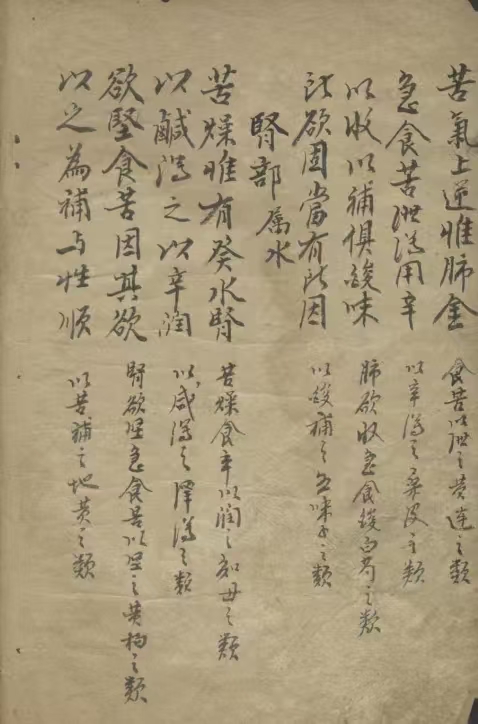 苦氣上逆惟肺金
食苦以泄之黄連之類
急食苦泄瀉用辛
以辛瀉之桑皮之類
以收以補俱酸味
肺欲收急食酸白芍之類
所欲固當有所因
以酸補之五味子之類
腎部属水
苦燥惟有癸水腎
苦燥食辛以潤之知母之類
以鹹瀉之以辛潤
以咸瀉之澤瀉之類
欲堅食苦因其欲
腎欲坚急食苦以坚之黄柏之類
以之為補与性順
以苦補之地黄之類